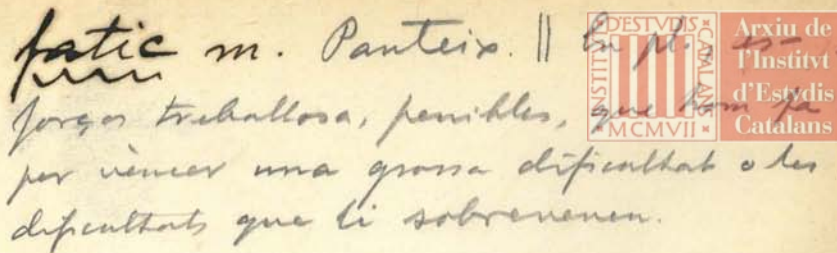 fatic m. Panteix. || En pl. es-
forços treballosos, penibles, que hom fa
per vèncer una grossa dificultat o les
dificultats que li sobrevenen.
INSTITVT D'ESTVDIS CATALANS
MCMVII
Arxiu de
l'Institvt
d'Estvdis
Catalans